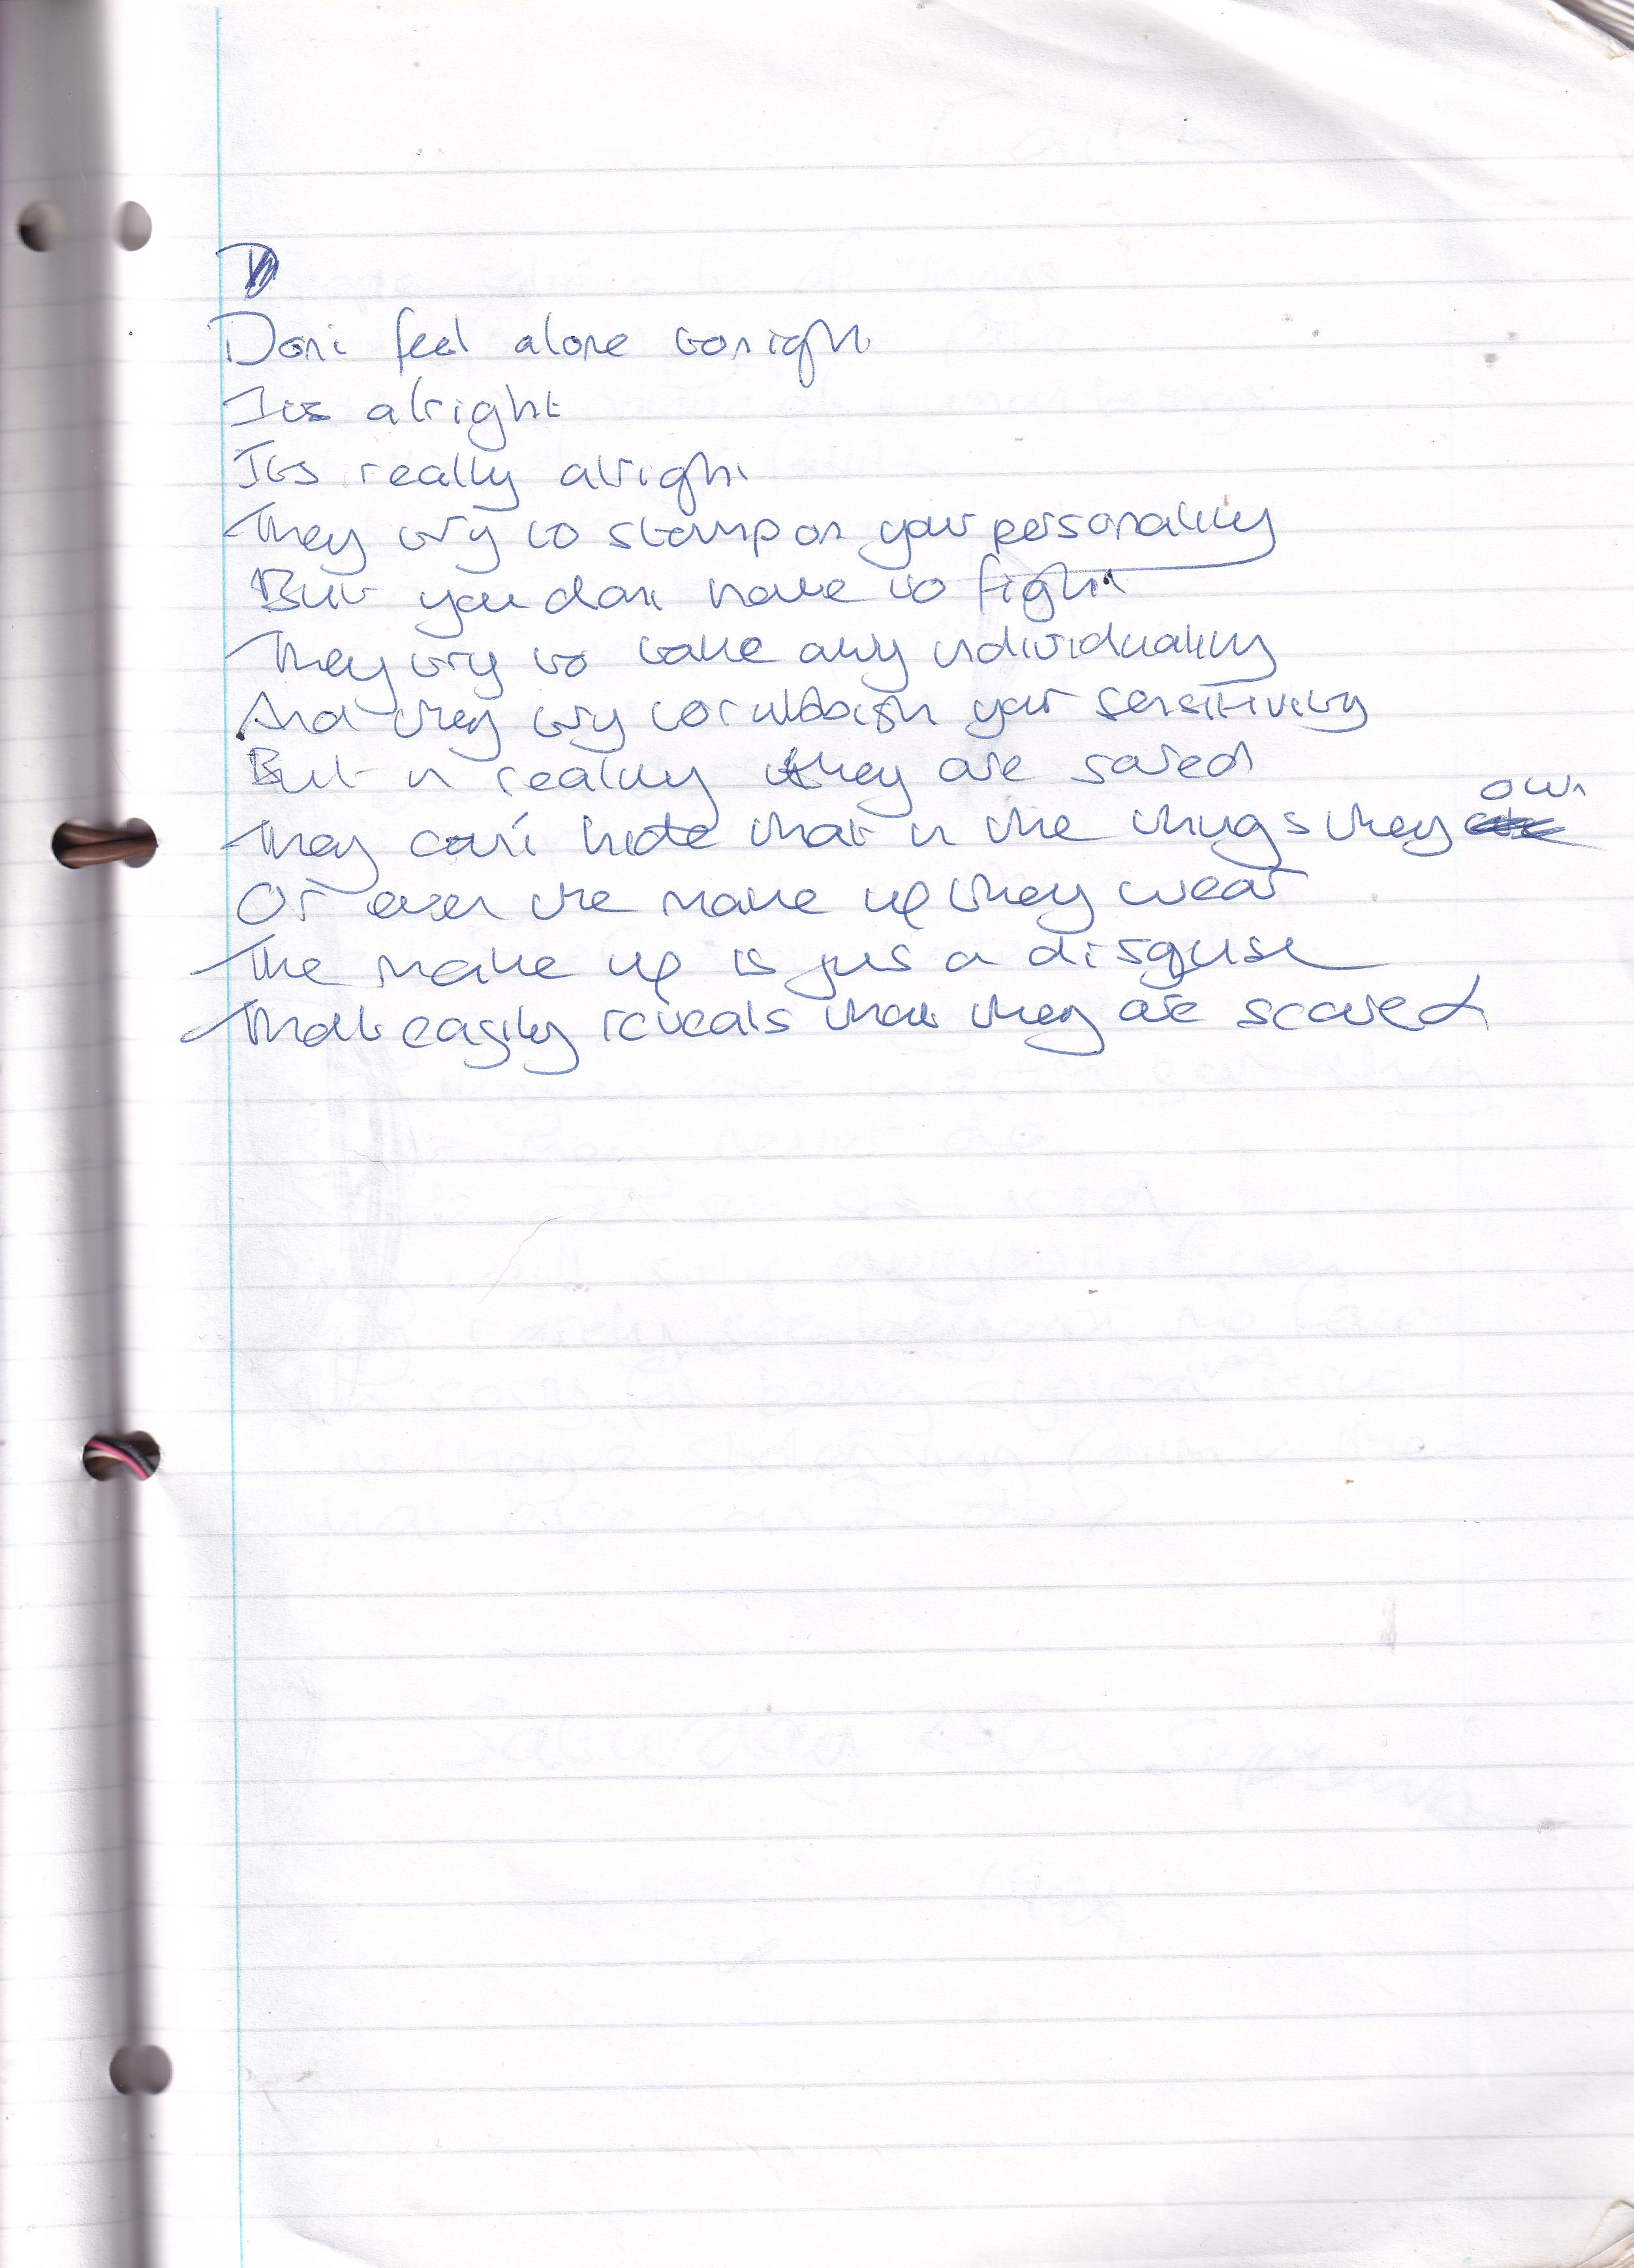 Dont feel alone tonight
Its alright
Its really alright
They try to stamp on your personality
But you dont have to fight
They try to take any individuality
And they try to rubbish your sensitivity
But in reality they are scared
They can't hide that in the things they own
Or even the make up they wear
The make up is just a disguise
That easily reveals that they are scared